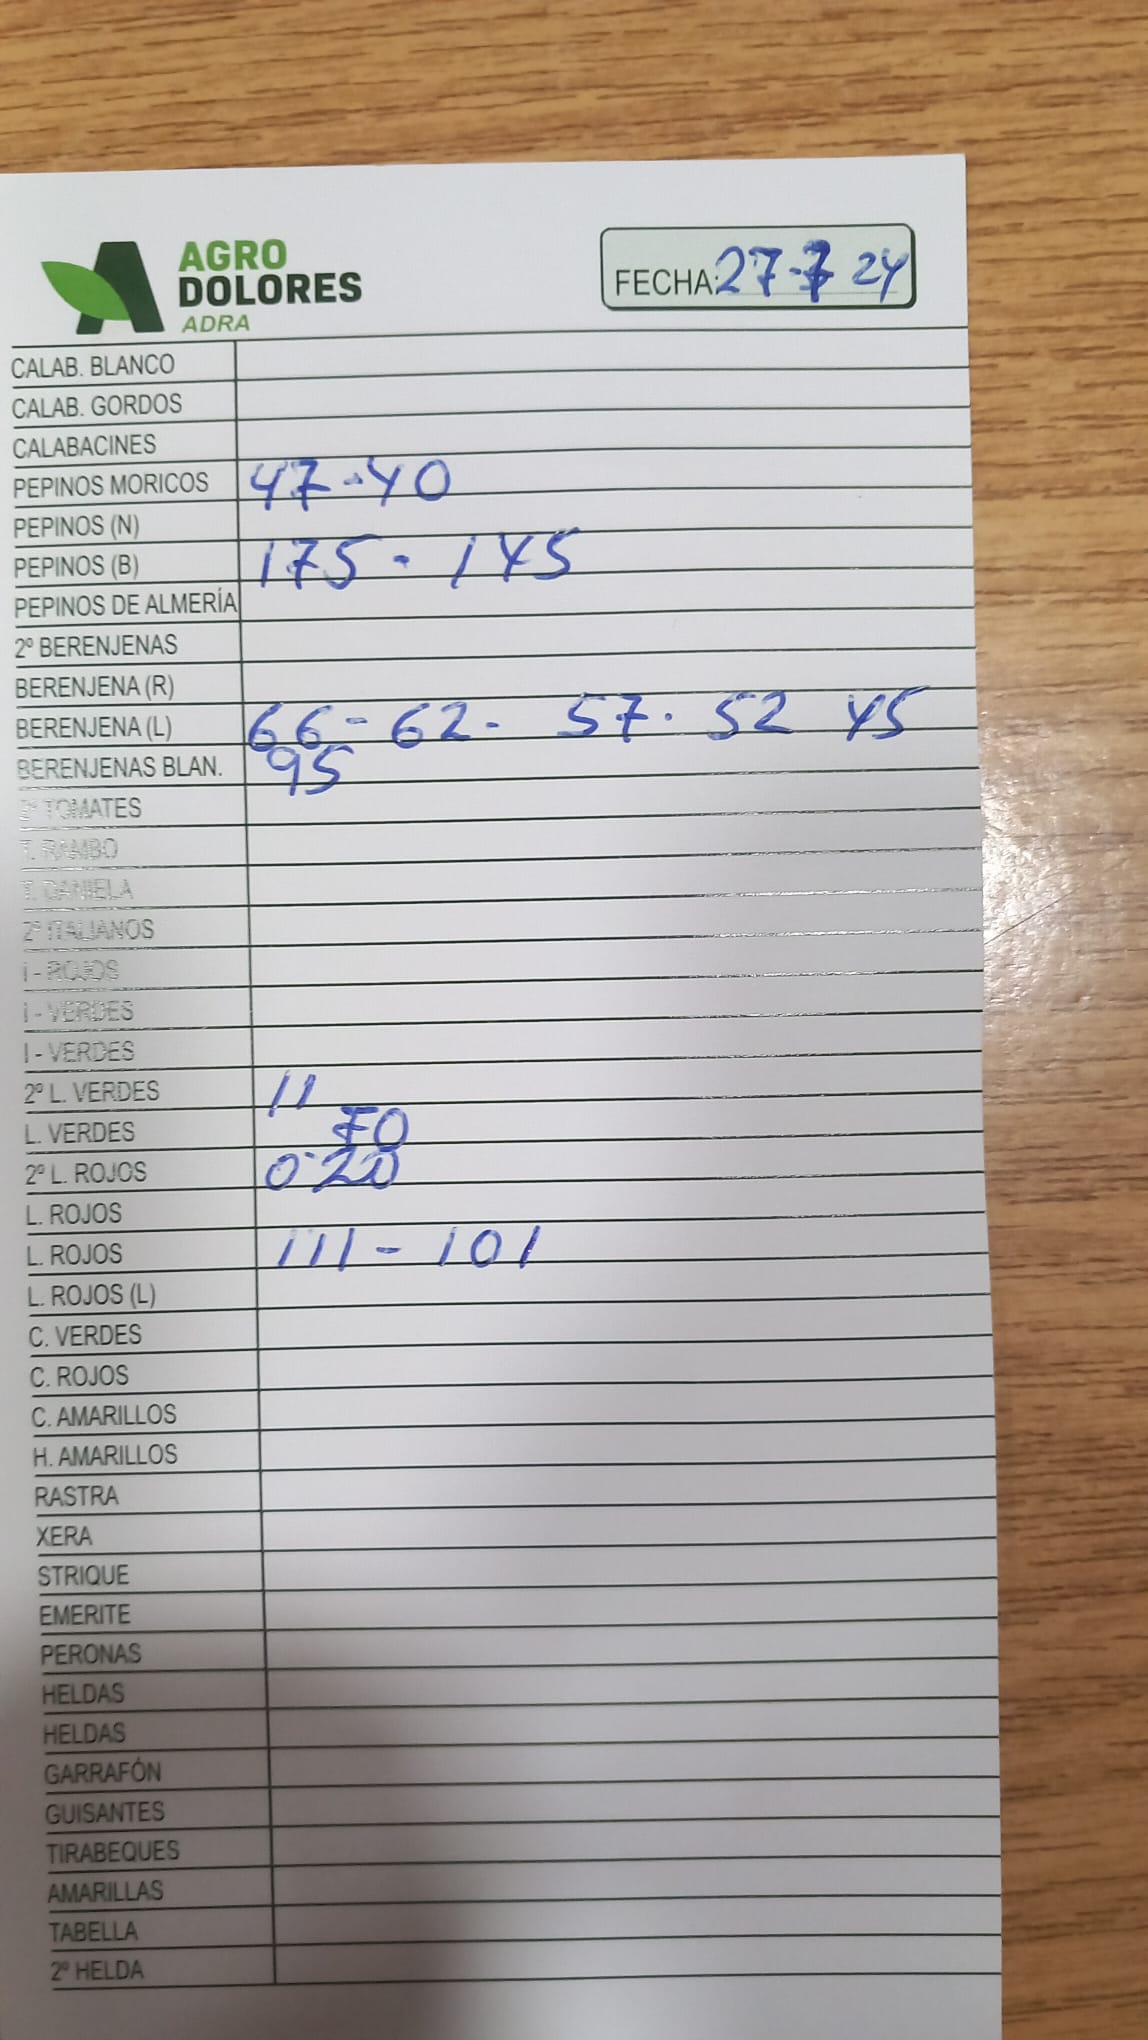 AGRO
DOLORES
ADRA
FECHA: 27-7 24
CALAB. BLANCO
CALAB. GORDOS
CALABACINES
PEPINOS MORICOS 47-40
PEPINOS (N)
PEPINOS (B) 175 - 145
PEPINOS DE ALMERÍA
2º BERENJENAS
BERENJENA (R)
BERENJENA (L) 66 - 62 - 57 - 52 45
BERENJENAS BLAN. 95
2º TOMATES
T. RAMBO
T. DANIELA
2º ITALIANOS
I - ROJOS
I - VERDES
I - VERDES
2º L. VERDES 11
L. VERDES 70
2º L. ROJOS 0'20
L. ROJOS
L. ROJOS 111 - 101
L. ROJOS (L)
C. VERDES
C. ROJOS
C. AMARILLOS
H. AMARILLOS
RASTRA
XERA
STRIQUE
EMERITE
PERONAS
HELDAS
HELDAS
GARRAFÓN
GUISANTES
TIRABEQUES
AMARILLAS
TABELLA
2º HELDA